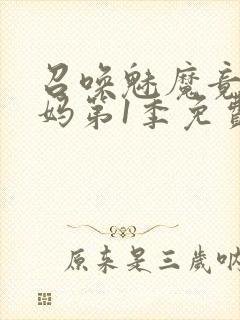 召唤魅魔竟
妈第1季免费
原来是三岁呐